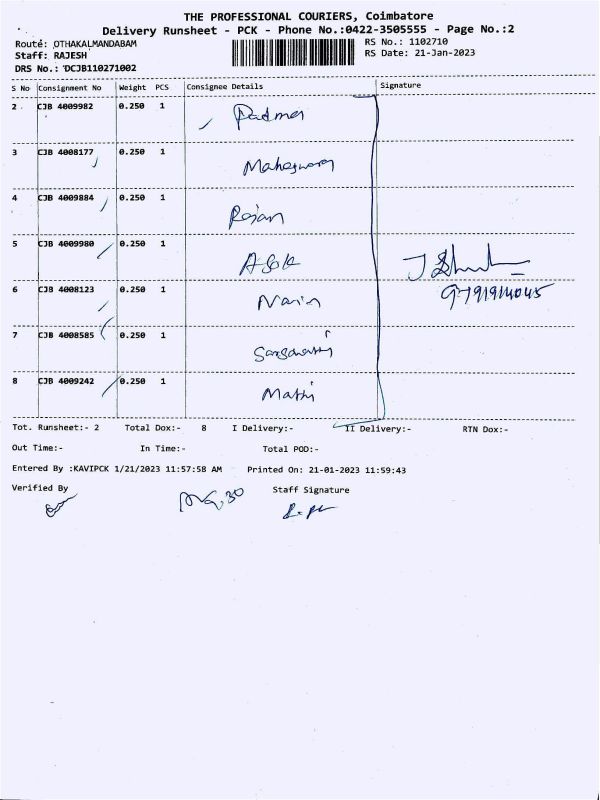 THE PROFESSIONAL COURIERS, Coimbatore
Delivery Runsheet - PCK - Phone No.:0422-3505555 - Page No.:2
Route: OTHAKALMANDABAM RS No.: 1102710
Staff: RAJESH RS Date: 21-Jan-2023
DRS No.: DCJB110271002
S No Consignment No Weight PCS Consignee Details Signature
2 CJB 4009982 0.250 1 Padma
3 CJB 4008177 0.250 1
4 CJB 4009884 0.250 1 Rajan
5 CJB 4009980 0.250 1 Asok
6 CJB 4008123 0.250 1
9791914045
7 CJB 4008585 0.250 1
8 CJB 4009242 0.250 1 Mathi
Tot. Runsheet:- 2 Total Dox:- 8 I Delivery:- II Delivery:- RTN Dox:-
Out Time:- In Time:- Total POD:-
Entered By :KAVIPCK 1/21/2023 11:57:58 AM Printed On: 21-01-2023 11:59:43
Verified By Staff Signature